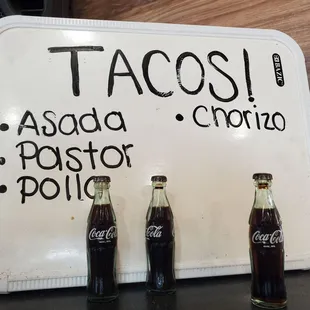 TACOS!
• Asada
• Pastor
• Pollo
• Chorizo
Coca-Cola
Coca-Cola
Coca-Cola